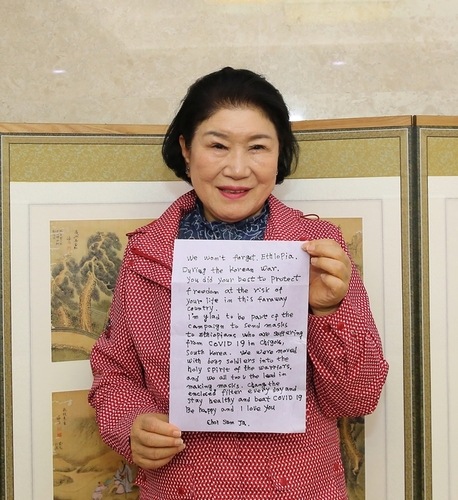 We won't forget, Ethiopia.
During the Korean War.
You did your best to protect
freedom at the risk of
your life in this faraway
country.
I'm glad to be part of the
campaign to send masks
to Ethiopians who are suffering
from COVID 19 in Chilgok,
South Korea. We were moved
with soldiers into the
holy spirit of the warriors,
and we all took the lead in
making masks. Change the
enclosed filter every day and
stay healthy and beat COVID 19
Be happy and I love you
Choi Soon Ja.